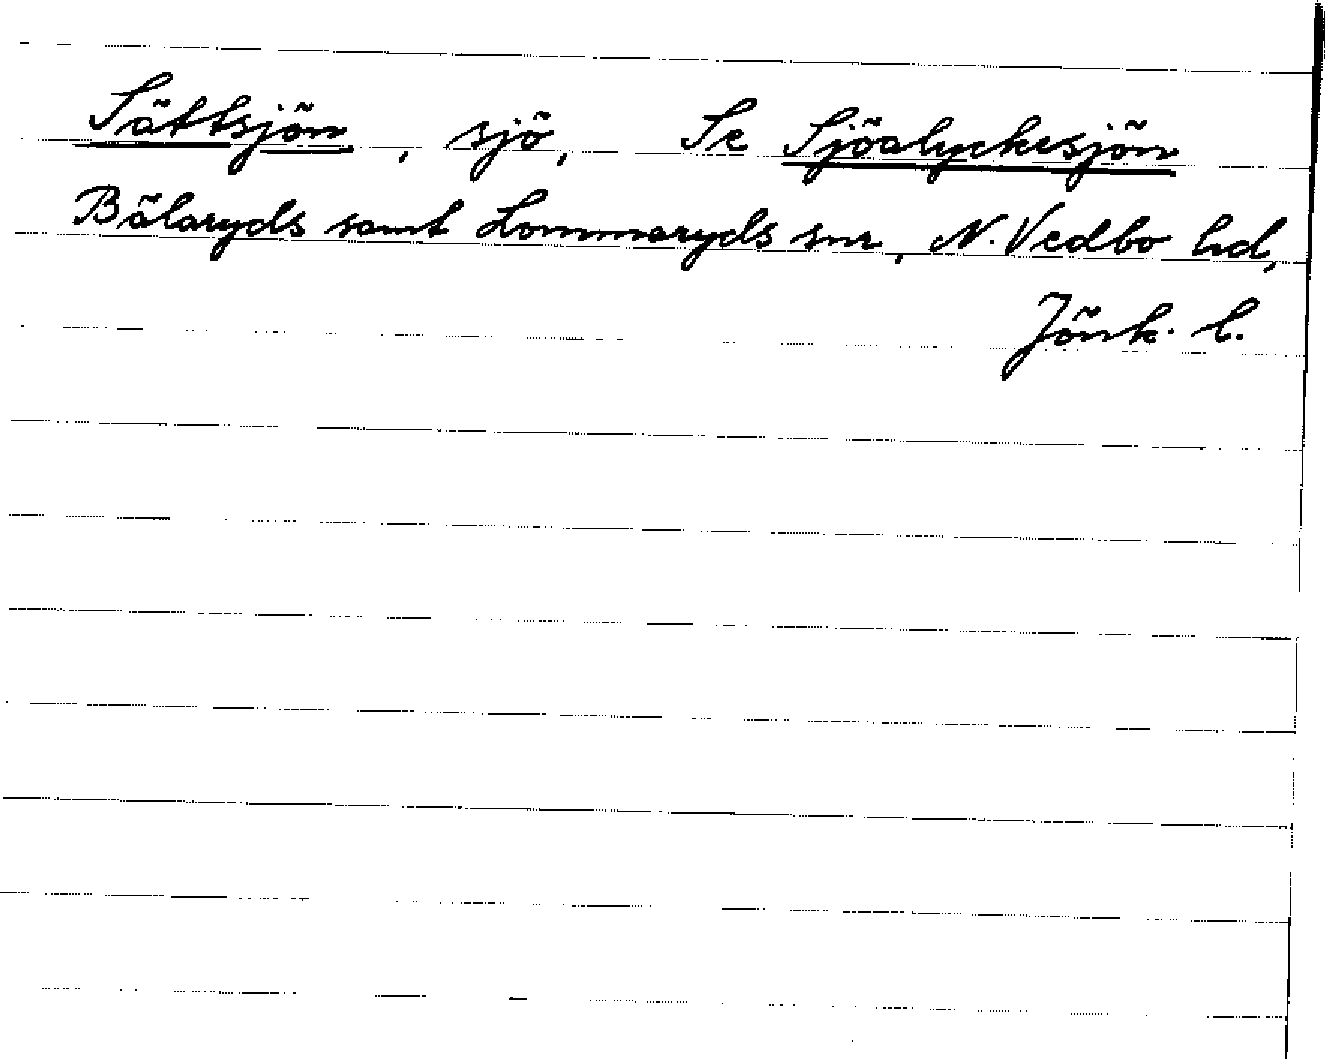 Sättsjön, sjö, Se Sjöalyckesjön
Bälaryds samt Lommaryds snr, N. Vedbo hd,
Jönk. l.